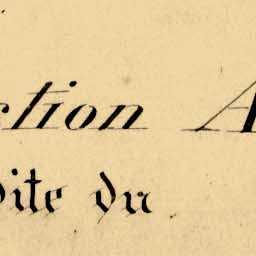 ction A
dite du